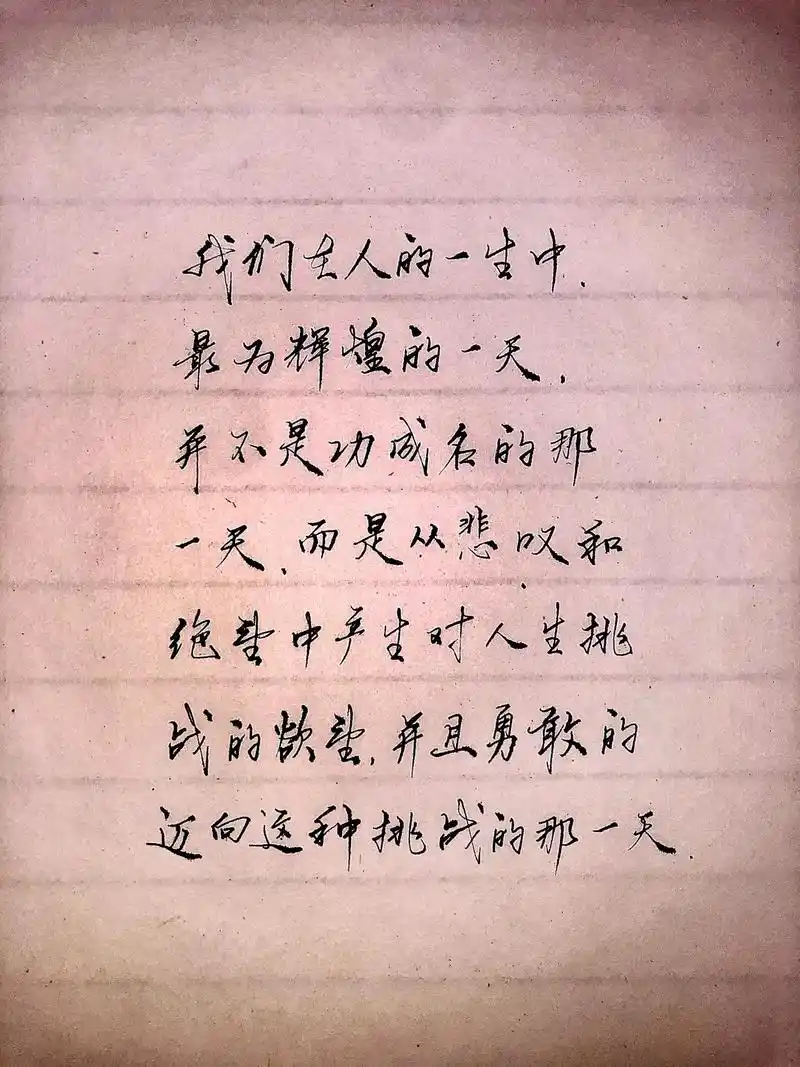 我们在人的一生中.
最为辉煌的一天,
并不是功成名的那
一天,而是从悲叹和
绝望中产生对人生挑
战的欲望,并且勇敢的
迈向这种挑战的那一天.